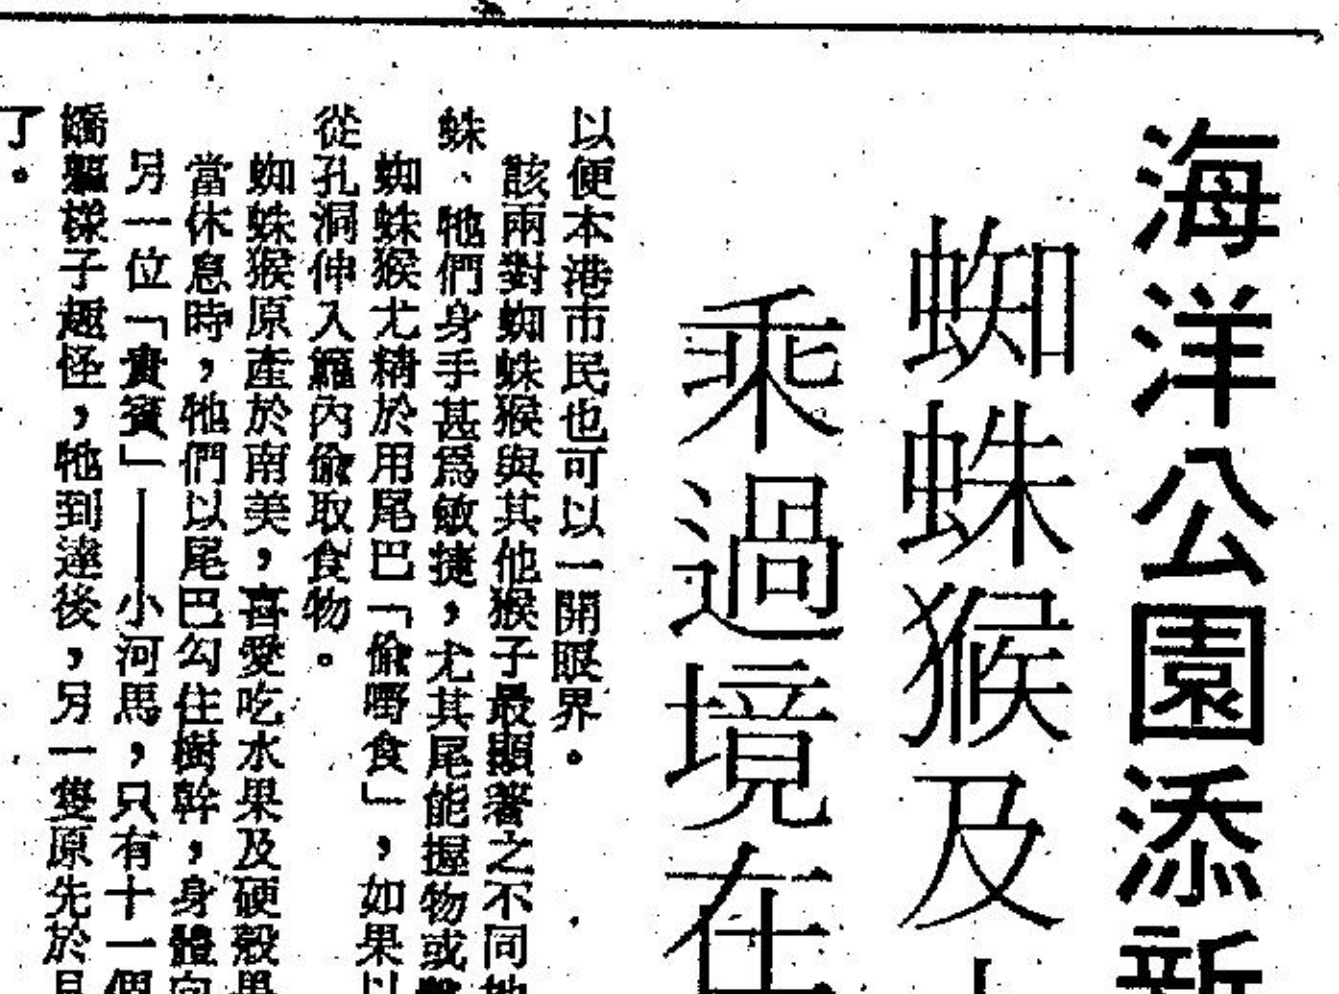 海洋公園添新
蜘蛛猴及
乘過境在
以便本港市民也可以一開眼界。
該兩對蜘蛛猴與其他猴子最顯著之不同地
蛛、牠們身手甚爲敏捷，尤其尾能握物或
蜘蛛猴尤精於用尾巴「偷嘢食」，如果以
從孔洞伸入籠內偷取食物。
蜘蛛猴原產於南美，喜愛吃水果及硬殼果
當休息時，牠們以尾巴勾住樹幹，身體向
另一位「貴賓」——小河馬，只有十一個
嬌軀樣子趣怪，牠到達後，另一隻原先於月
了。